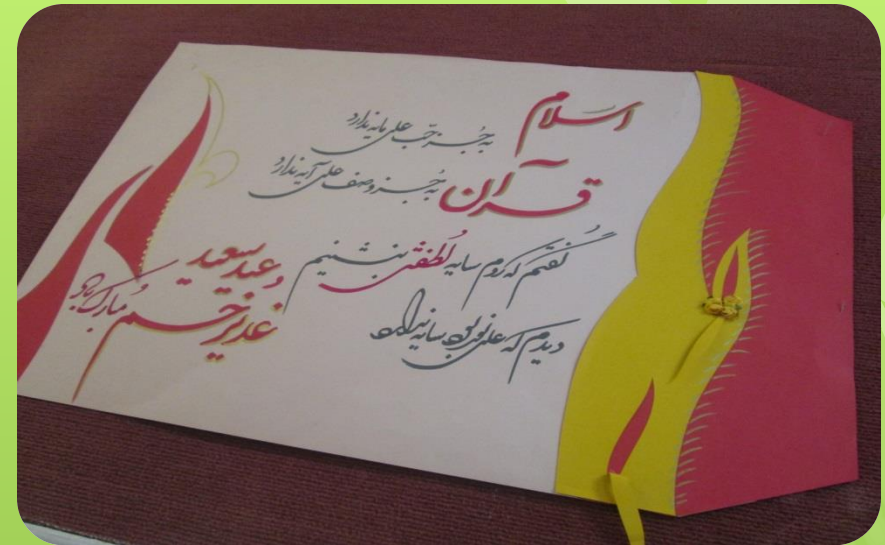 اسلام به جز حب علی پایه ندارد
قرآن به جز وصف علی آیه ندارد
گفتم که روم سایه لطفش بنشینم
دیدم که علی نور بود سایه ندارد
عید سعید
غدیر خم
مبارک باد